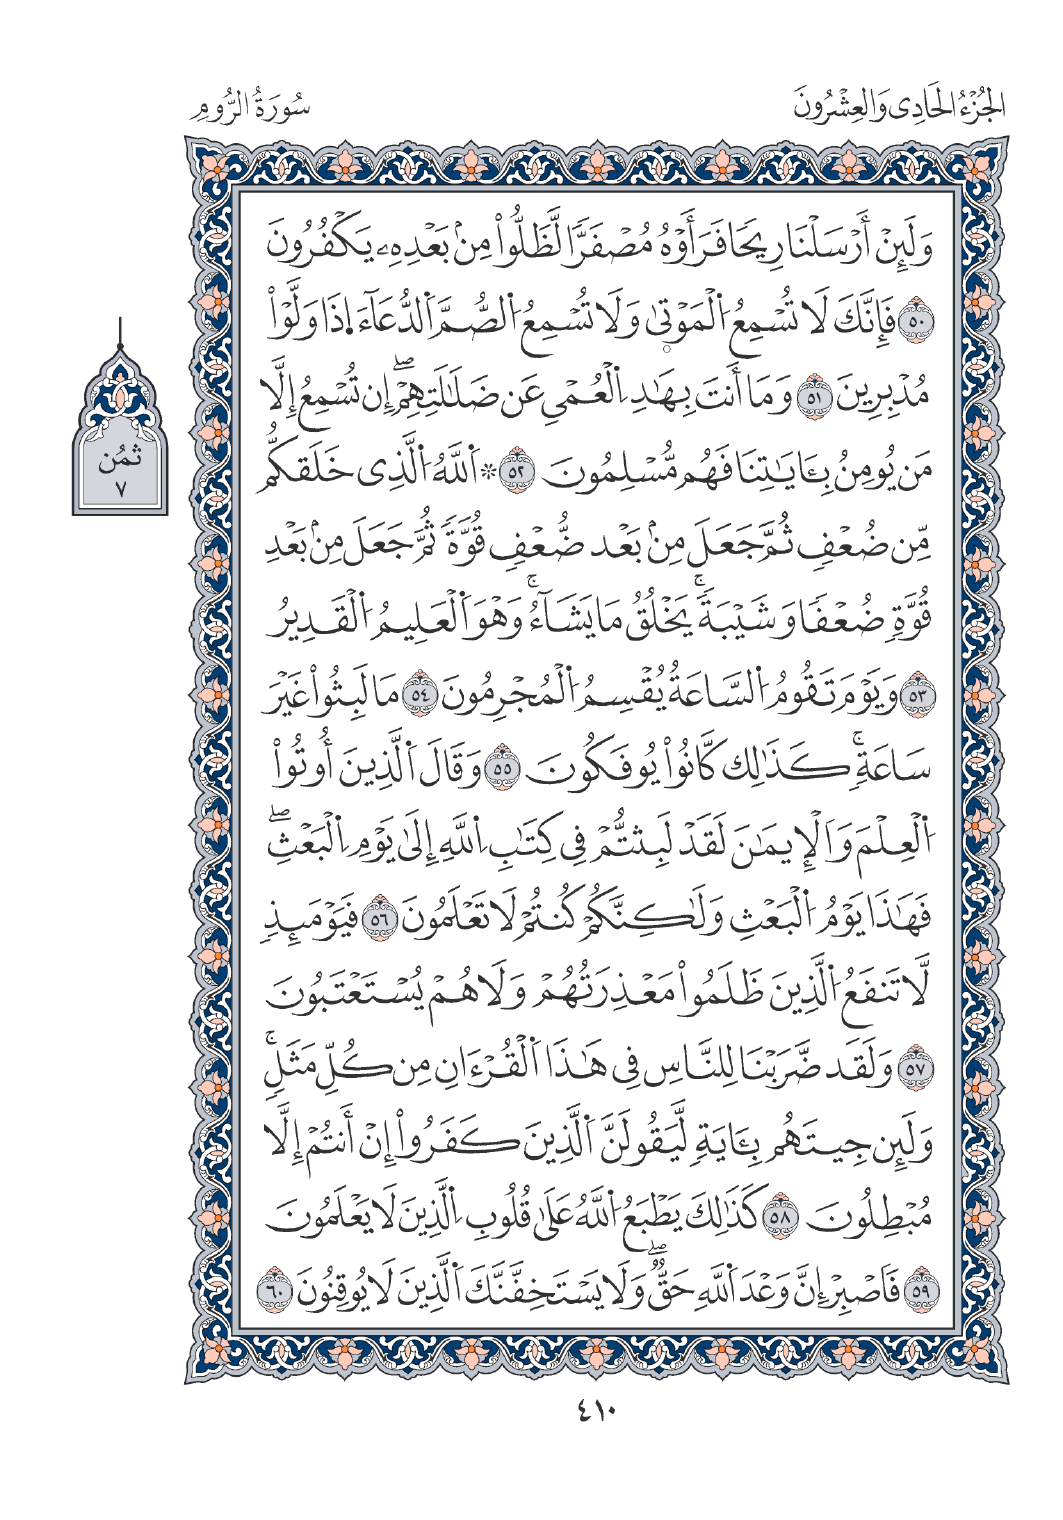 الجُزْءُ الحَادِى وَالعِشْرُونَ
سُورَةُ الرُّومِ
وَلَئِنْ أَرْسَلْنَا رِيحًا فَرَأَوْهُ مُصْفَرًّا لَّظَلُّواْ مِنۢ بَعْدِهِۦ يَكْفُرُونَ
٥٠ فَإِنَّكَ لَا تُسْمِعُ اُلْمَوْتۭىٰ وَلَا تُسْمِعُ اُلصُّمَّ اَلدُّعَآءَ اِ۬ذَا وَلَّوْاْ
مُدْبِرِينَ ٥١ وَمَا أَنتَ بِهَٰدِ اِلْعُمْيِ عَن ضَلَٰلَتِهِمْۖ إِن تُسْمِعُ إِلَّا
مَن يُومِنُ بِـَٔايَٰتِنَا فَهُم مُّسْلِمُونَ ٥٢ ۞ اَللَّهُ اُلَّذِى خَلَقكُّم
مِّن ضُعْفٍ ثُمَّ جَعَلَ مِنۢ بَعْد ضُّعْفٍ قُوَّةً ثُمَّ جَعَلَ مِنۢ بَعْدِ
قُوَّةٍ ضُعْفًا وَشَيْبَةًۚ يَخْلُقُ مَا يَشَآءُۚ وَهْوَ اَلْعَلِيمُ اُلْقَدِيرُ
٥٣ وَيَوْمَ تَقُومُ اُلسَّاعَةُ يُقْسِمُ اُلْمُجْرِمُونَ ٥٤ مَا لَبِثُواْ غَيْرَ
سَاعَةٍۚ كَذَٰلِك كَّانُواْ يُوفَكُونَ ٥٥ وَقَالَ اَلَّذِينَ أُوتُواْ
اُلْعِلْمَ وَالْإِيمَٰنَ لَقَدْ لَبِثتُّمْ فِى كِتَٰبِ اِللَّهِ إِلَىٰ يَوْمِ اِلْبَعْثِۖ
فَهَٰذَا يَوْمُ اُلْبَعْثِ وَلَٰكِنَّكُمْ كُنتُمْ لَا تَعْلَمُونَ ٥٦ فَيَوْمَئِذٍ
لَّا تَنفَعُ اُلَّذِينَ ظَلَمُواْ مَعْذِرَتُهُمْ وَلَا هُمْ يُسْتَعْتَبُونَ
٥٧ وَلَقَد ضَّرَبْنَا لِلنَّاسِ فِى هَٰذَا اَلْقُرْءَانِ مِن كُلِّ مَثَلٍۚ
وَلَئِن جِيتَهُم بِـَٔايَةٍ لَّيَقُولَنَّ اَلَّذِينَ كَفَرُواْ إِنْ أَنتُمْ إِلَّا
مُبْطِلُونَ ٥٨ كَذَٰلِكَ يَطْبَعُ اُللَّهُ عَلَىٰ قُلُوبِ اِلَّذِينَ لَا يَعْلَمُونَ
٥٩ فَاصْبِرْ إِنَّ وَعْدَ اَللَّهِ حَقٌّۖ وَلَا يَسْتَخِفَّنَّكَ اَلَّذِينَ لَا يُوقِنُونَ ٦٠
ثُمُن
٧
٤١٠